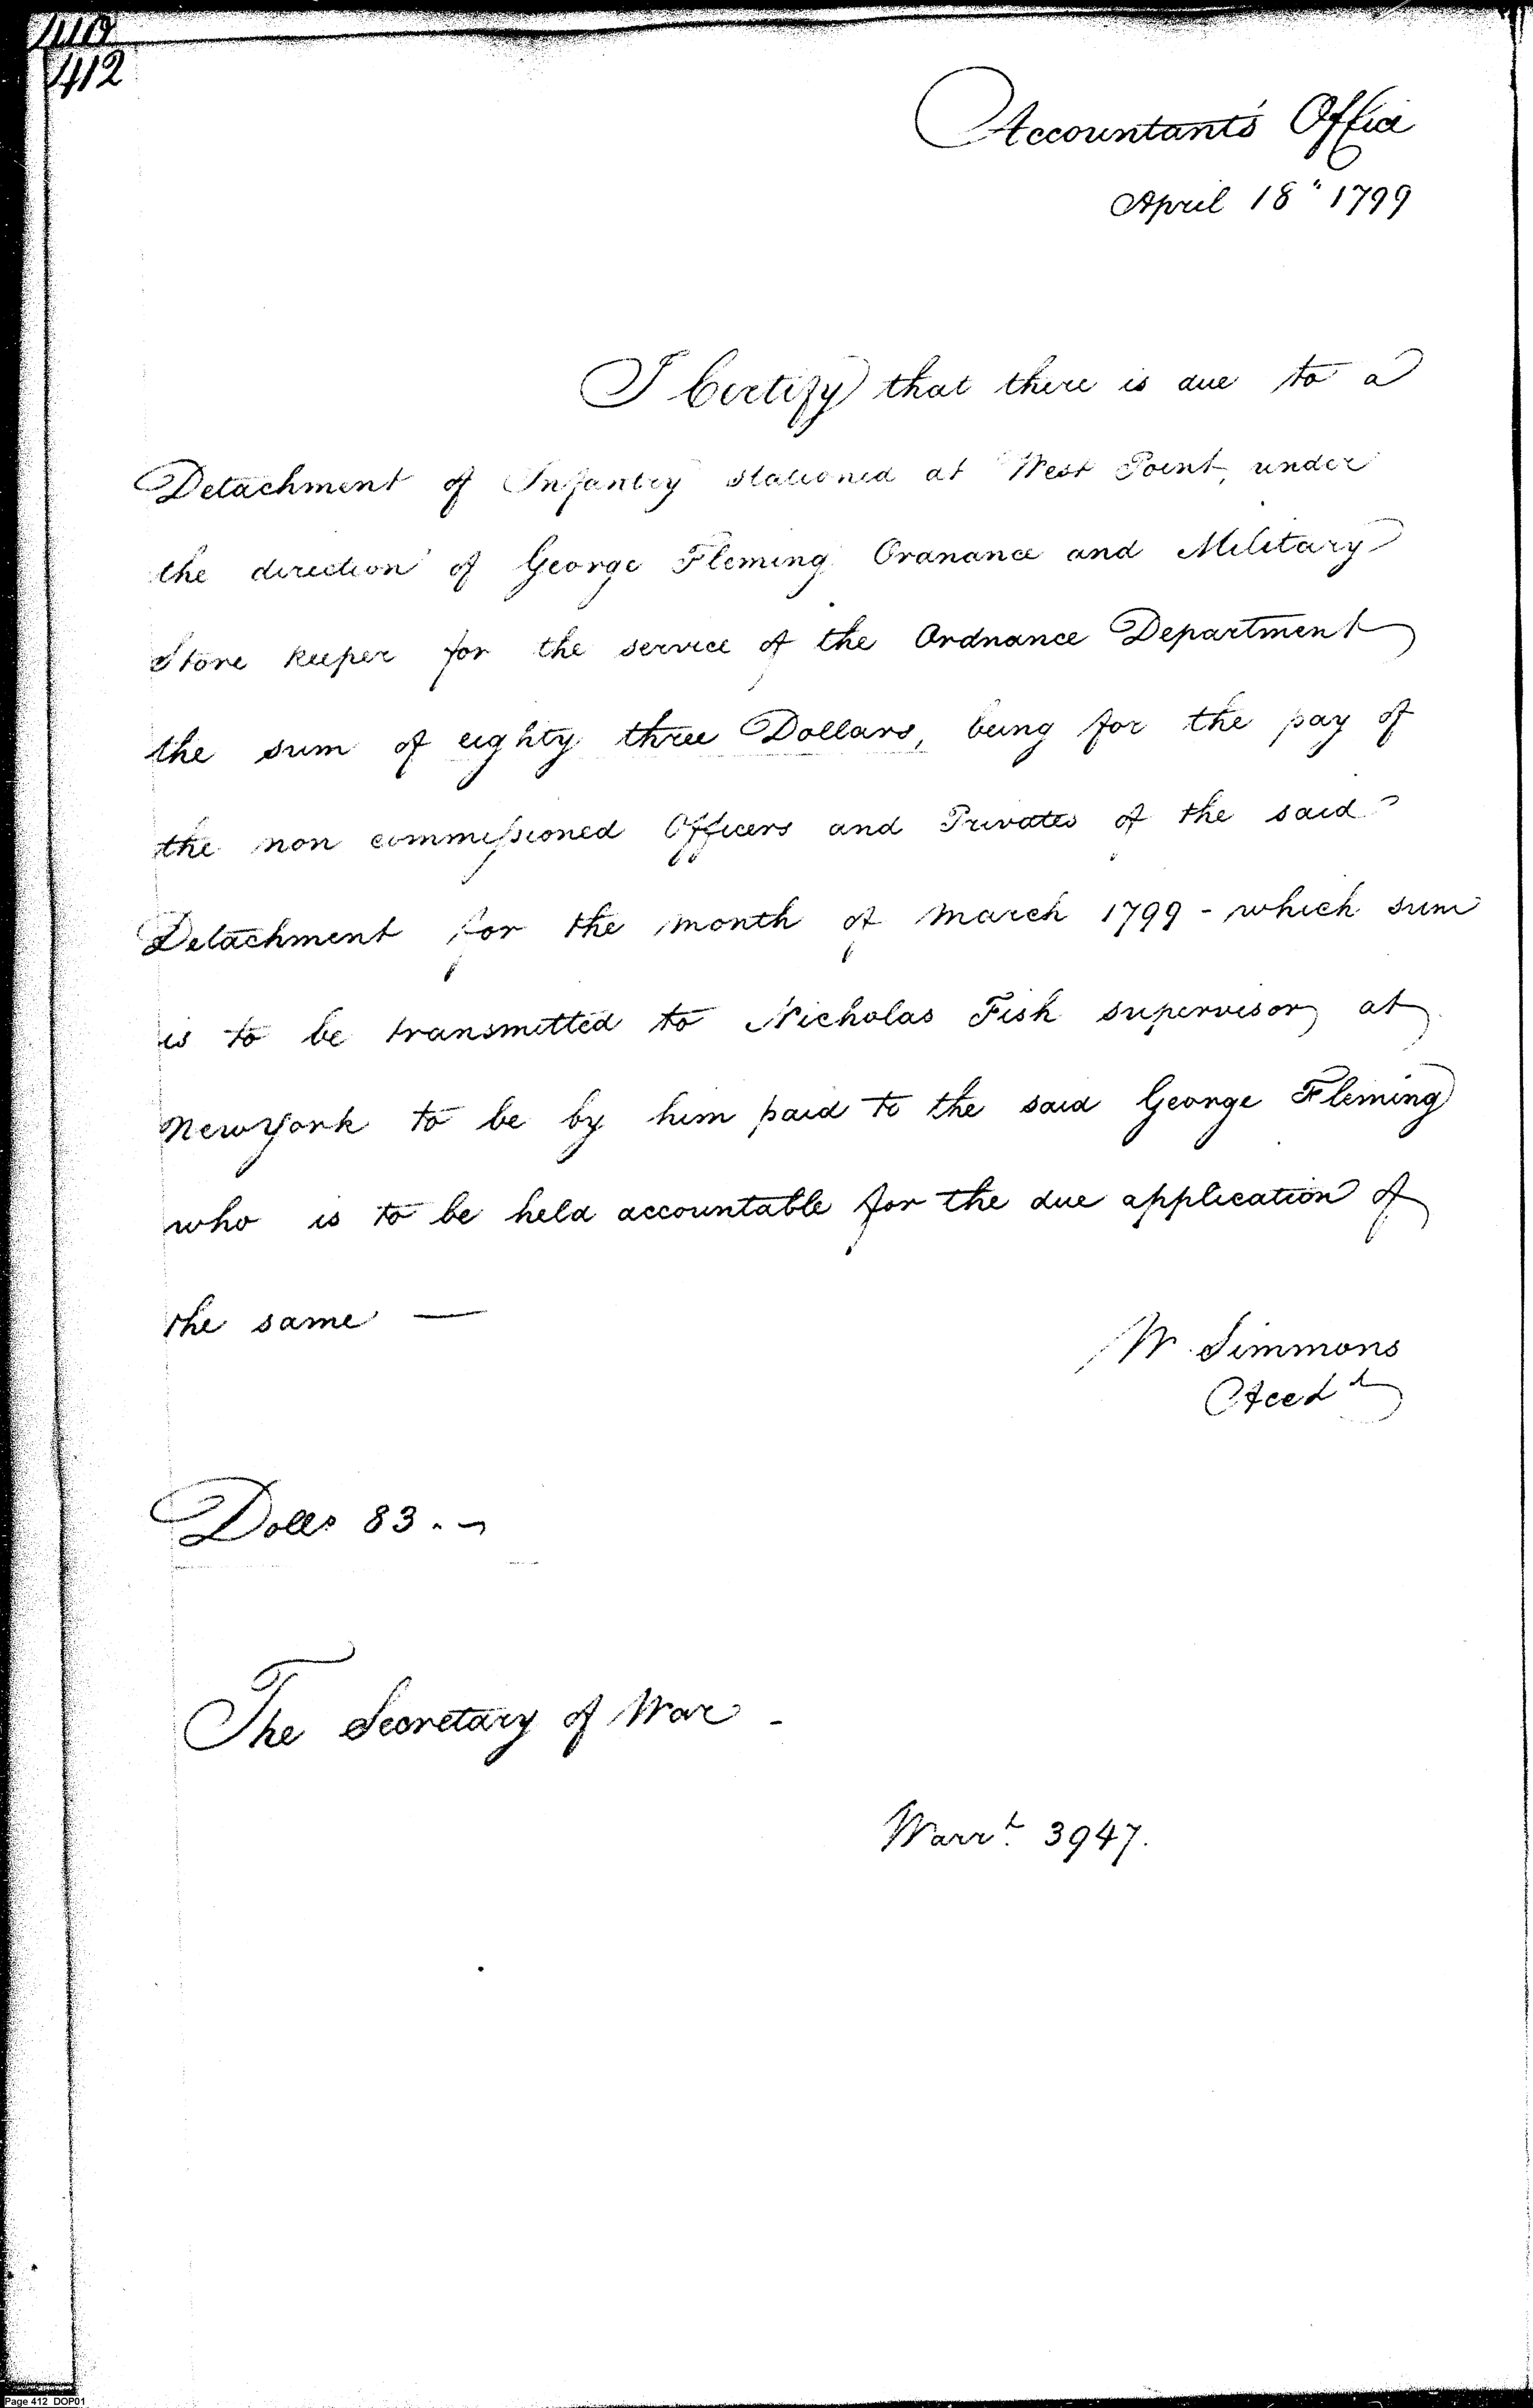 412
Accountant's Office
April 18" 1799
I Certify that there is due to a
Detachment of Infantry stationed at West Point, under
the direction of George Fleming Ordnance and Military
Store keeper for the service of the Ordnance Department
the sum of eighty three Dollars, being for the pay of
the non commissioned Officers and Privates of the said
Detachment for the month of March 1799 - which sum
is to be transmitted to Nicholas Fish supervisor at
Newyork to be by him paid to the said George Fleming
who is to be held accountable for the due application of
the same —
W Simmons
Acct
Dolls 83. -
The Secretary of War -
Warrt. 3947.
Page 412 DOP01